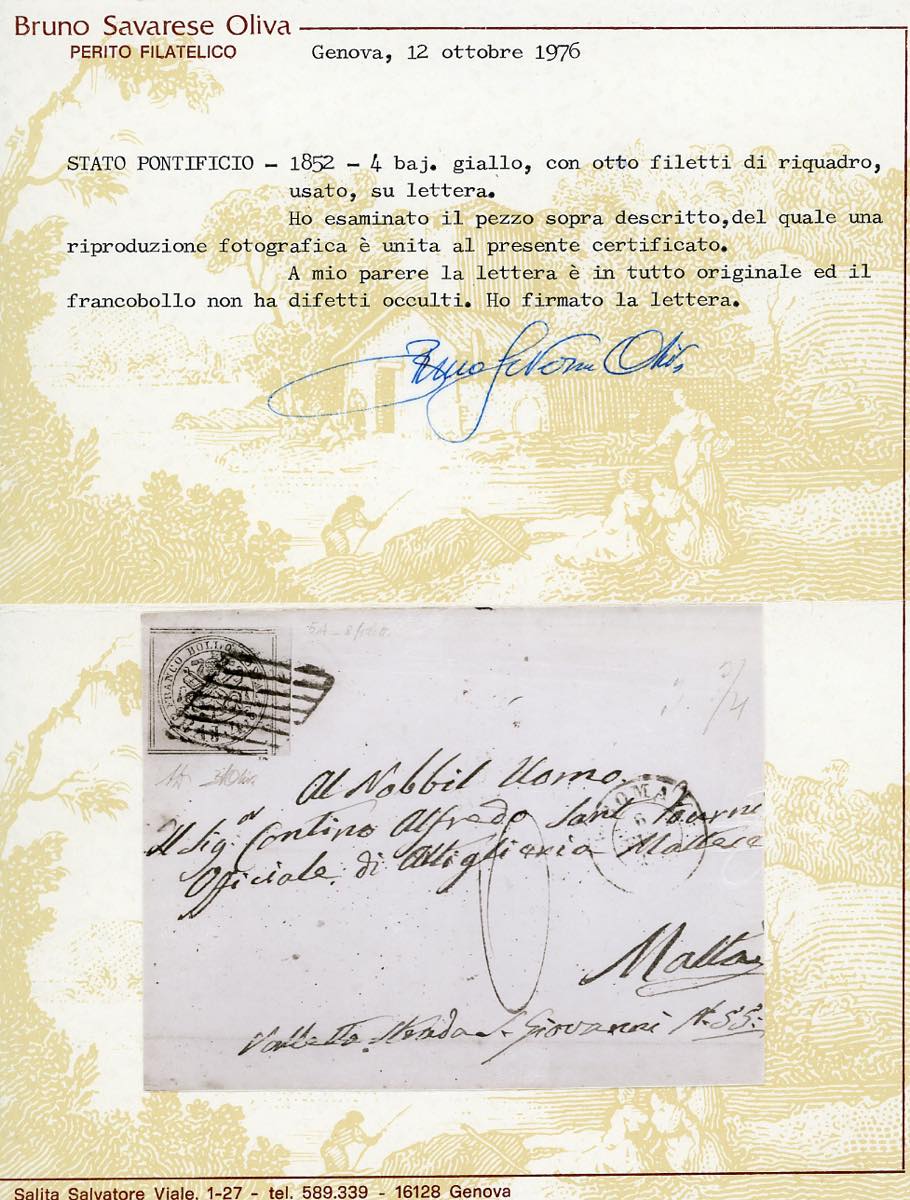 Bruno Savarese Oliva
PERITO FILATELICO
Genova, 12 ottobre 1976
STATO PONTIFICIO - 1852 - 4 baj. giallo, con otto filetti di riquadro,
usato, su lettera.
Ho esaminato il pezzo sopra descritto,del quale una
riproduzione fotografica è unita al presente certificato.
A mio parere la lettera è in tutto originale ed il
francobollo non ha difetti occulti. Ho firmato la lettera.
FRANCO BOLLO
Al Nobbil Uomo
Il Sig. Contino Alfredo Sant Fourne
Oficiale di Attiglieria Maltese
ROMA
6
Malta
Valletta Strada S. Giovanni N. 55.
Salita Salvatore Viale, 1-27 - tel. 589.339 - 16128 Genova